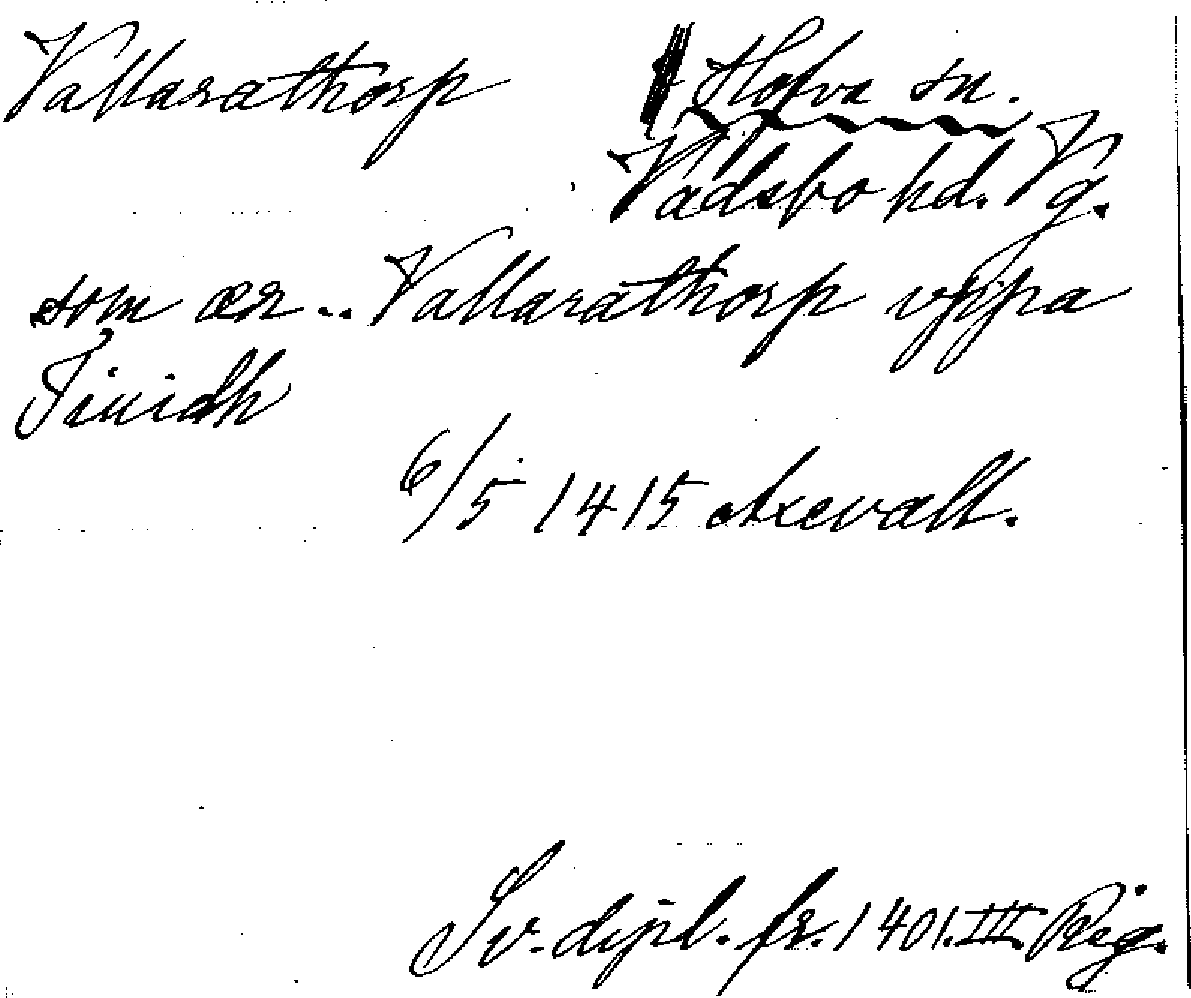 Vallarathorp Hofva sn.
Vadsbo hd. Vg.
som ær .. Vallarathorp uppa
Tiuidh
6/5 1415 Axevall.
Sv. dipl. fr. 1401. III. Rig.